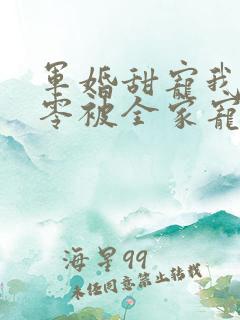 军婚甜宠我
零被全家宠
海星99
未经同意禁止转载